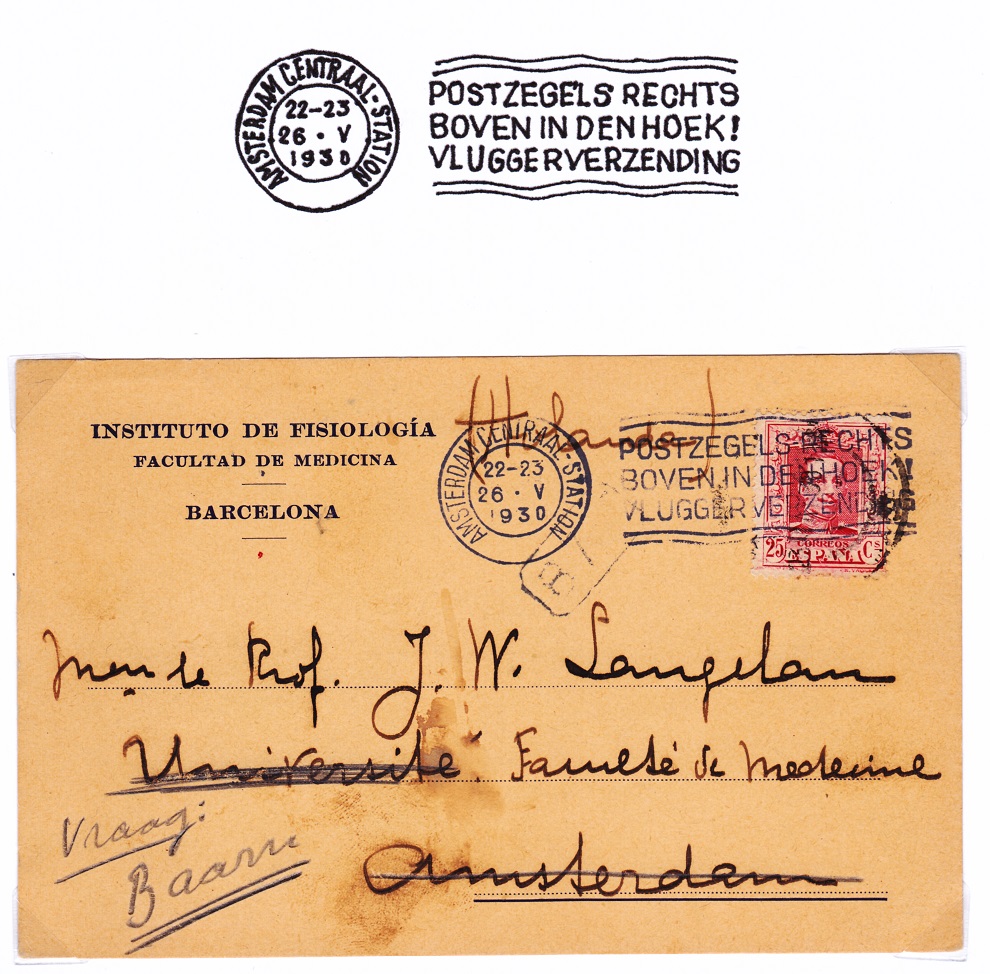 AMSTERDAM CENTRAAL-STATION
22-23
26 · V
1930
POSTZEGELS RECHTS
BOVEN IN DEN HOEK!
VLUGGER VERZENDING
(Holanda)
INSTITUTO DE FISIOLOGÍA
FACULTAD DE MEDICINA
BARCELONA
AMSTERDAM CENTRAAL-STATION
22-23
26 · V
1930
POSTZEGELS RECHTS
BOVEN IN DEN HOEK!
VLUGGER VERZENDING
25 CORREOS Cs
ESPAÑA
8
Prof. J. W. Langelaan
Université. Faculté de Medecine
Vraag:
Baarn
Amsterdam